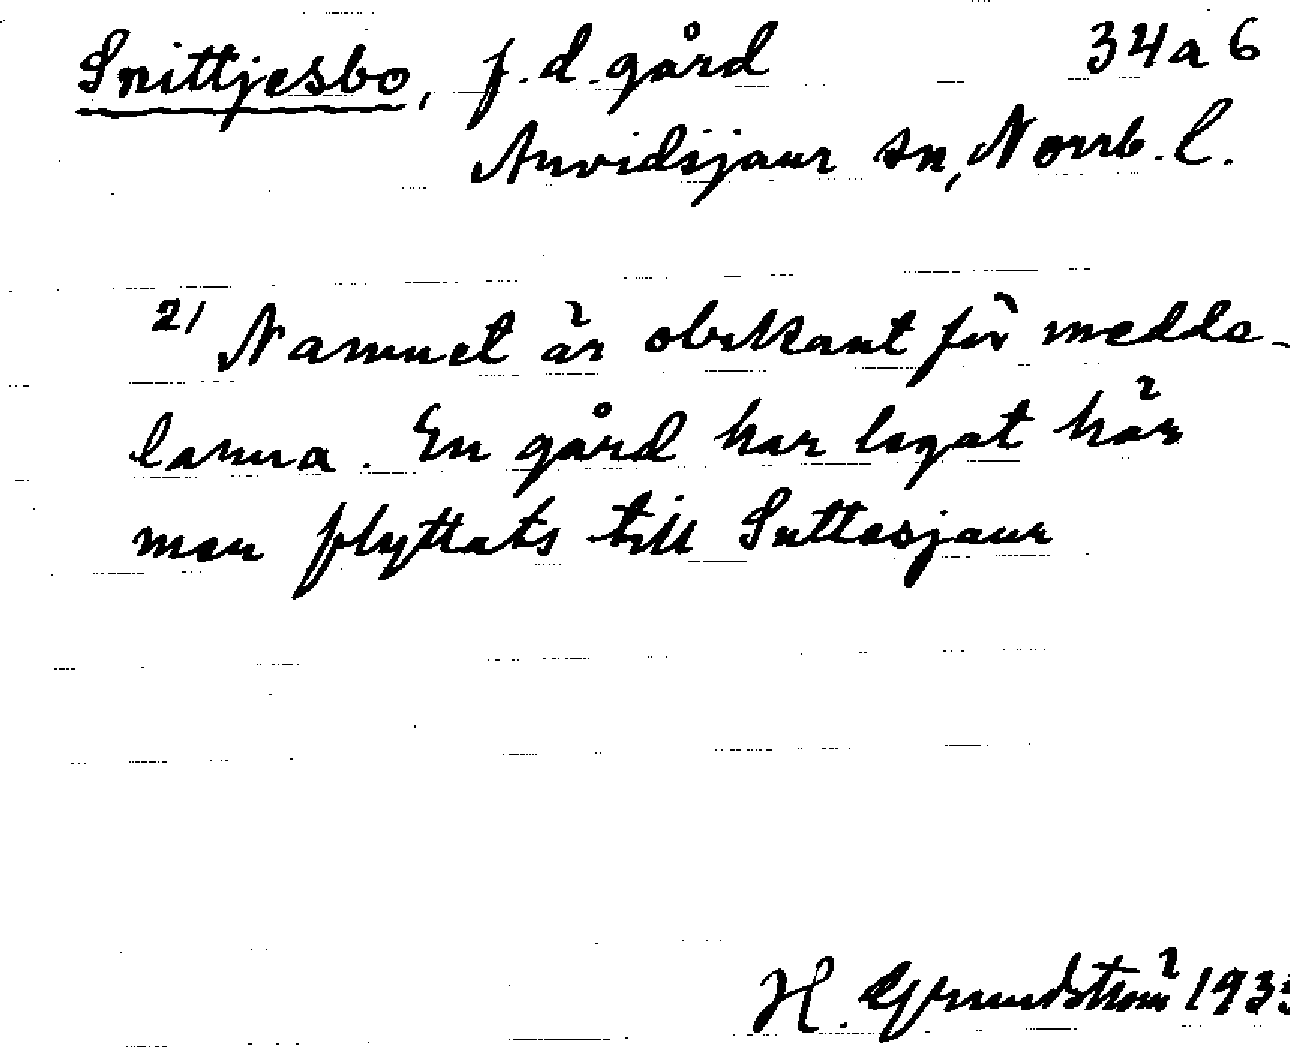 Snittjesbo, f.d. gård 34a6
Arvidsjaur sn, Norrb. l.
2/ Namnet är obekant för medde-
larna. En gård har legat här
men flyttats till Suttesjaur
H. Grundström 193